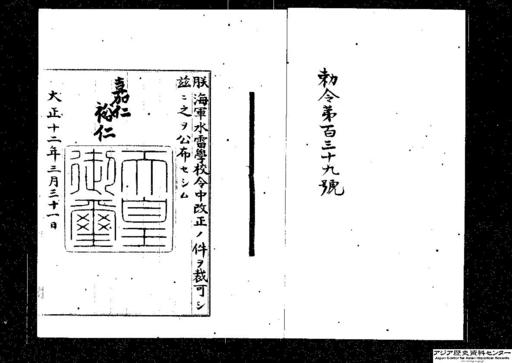 勅令第百三十九號
朕海軍水雷學校令中改正ノ件ヲ裁可シ
玆ニ之ヲ公布セシム
嘉仁
裕仁
大正十二年三月三十一日
天皇
御璽
アジア歴史資料センター
Japan Center for Asian Historical Records